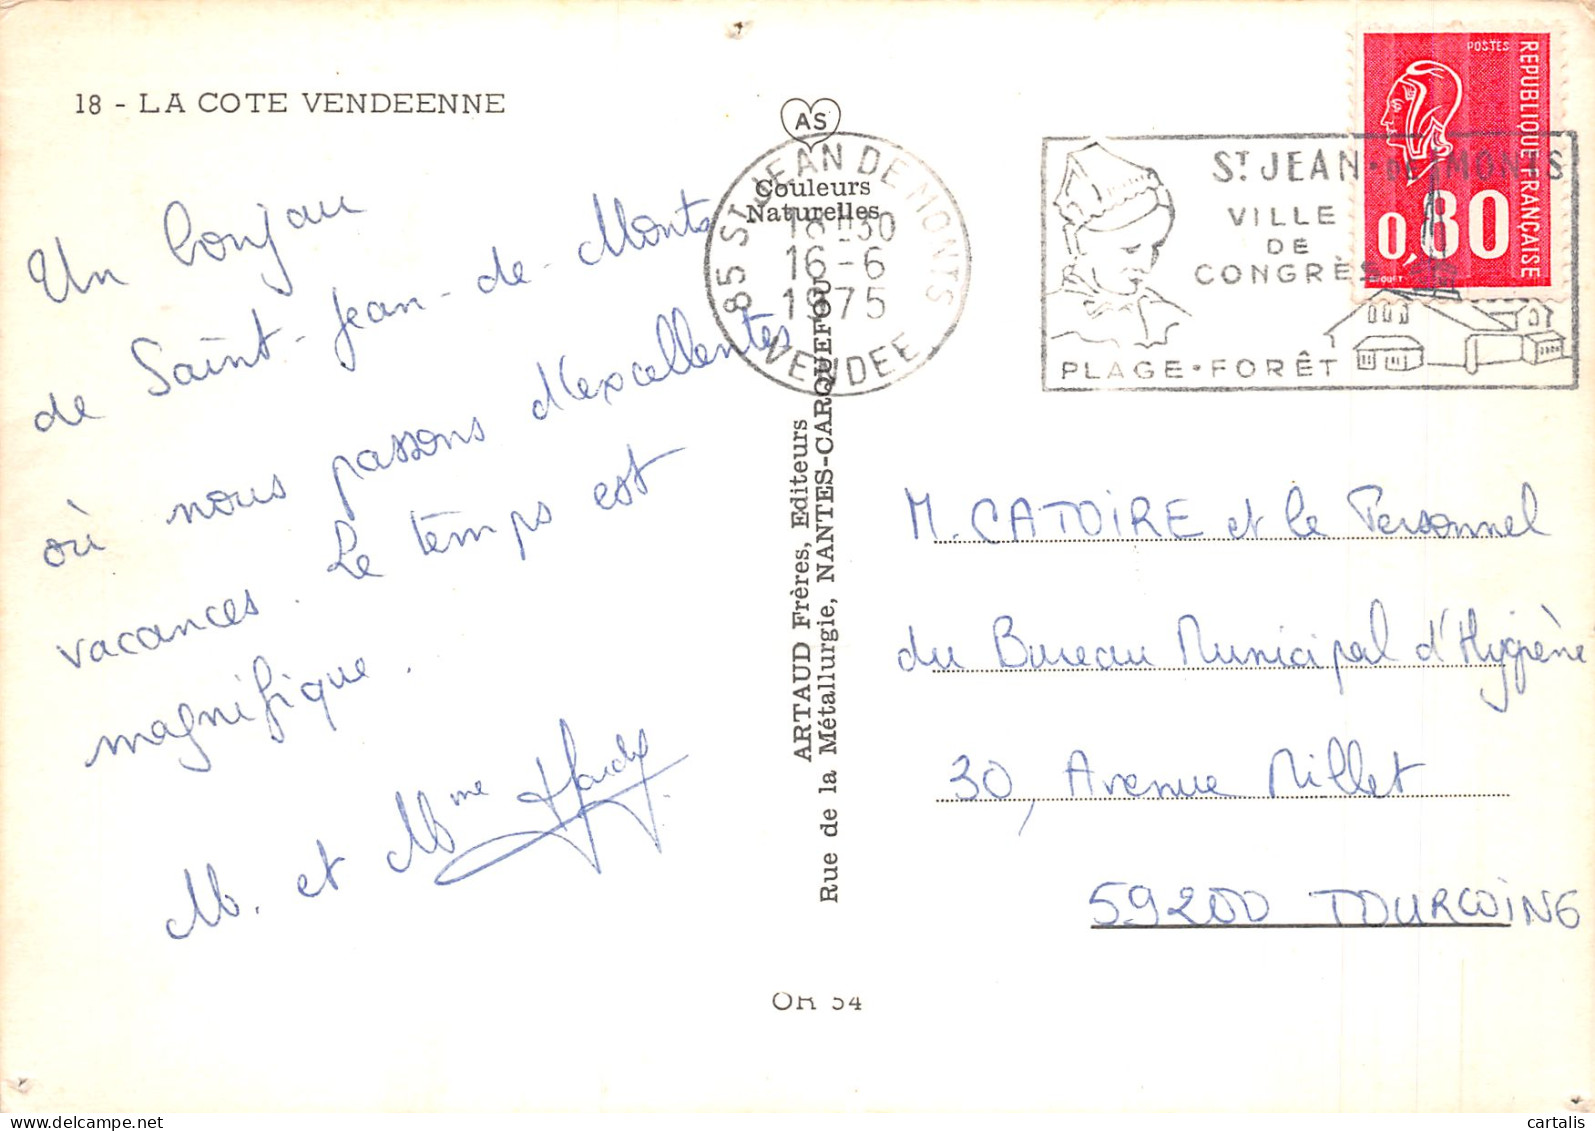 18 - LA COTE VENDEENNE
Un bonjour
de Saint-Jean-de-Monts
où nous passons d'excellentes
vacances. Le temps est
magnifique.
M. et Mme Hardy
AS
Couleurs
Naturelles
85 ST JEAN DE MONTS
18H30
16-6
1975
VENDEE
ARTAUD Frères, Editeurs
Rue de la Métallurgie, NANTES-CARQUEFOU
OR 54
ST JEAN-DE-MONTS
VILLE
DE
CONGRÈS
PLAGE-FORÊT
POSTES
REPUBLIQUE FRANÇAISE
0,80
M. CATOIRE et le Personnel
du Bureau Municipal d'Hygiène
30, Avenue Millet
59200 TOURCOING
cartalis